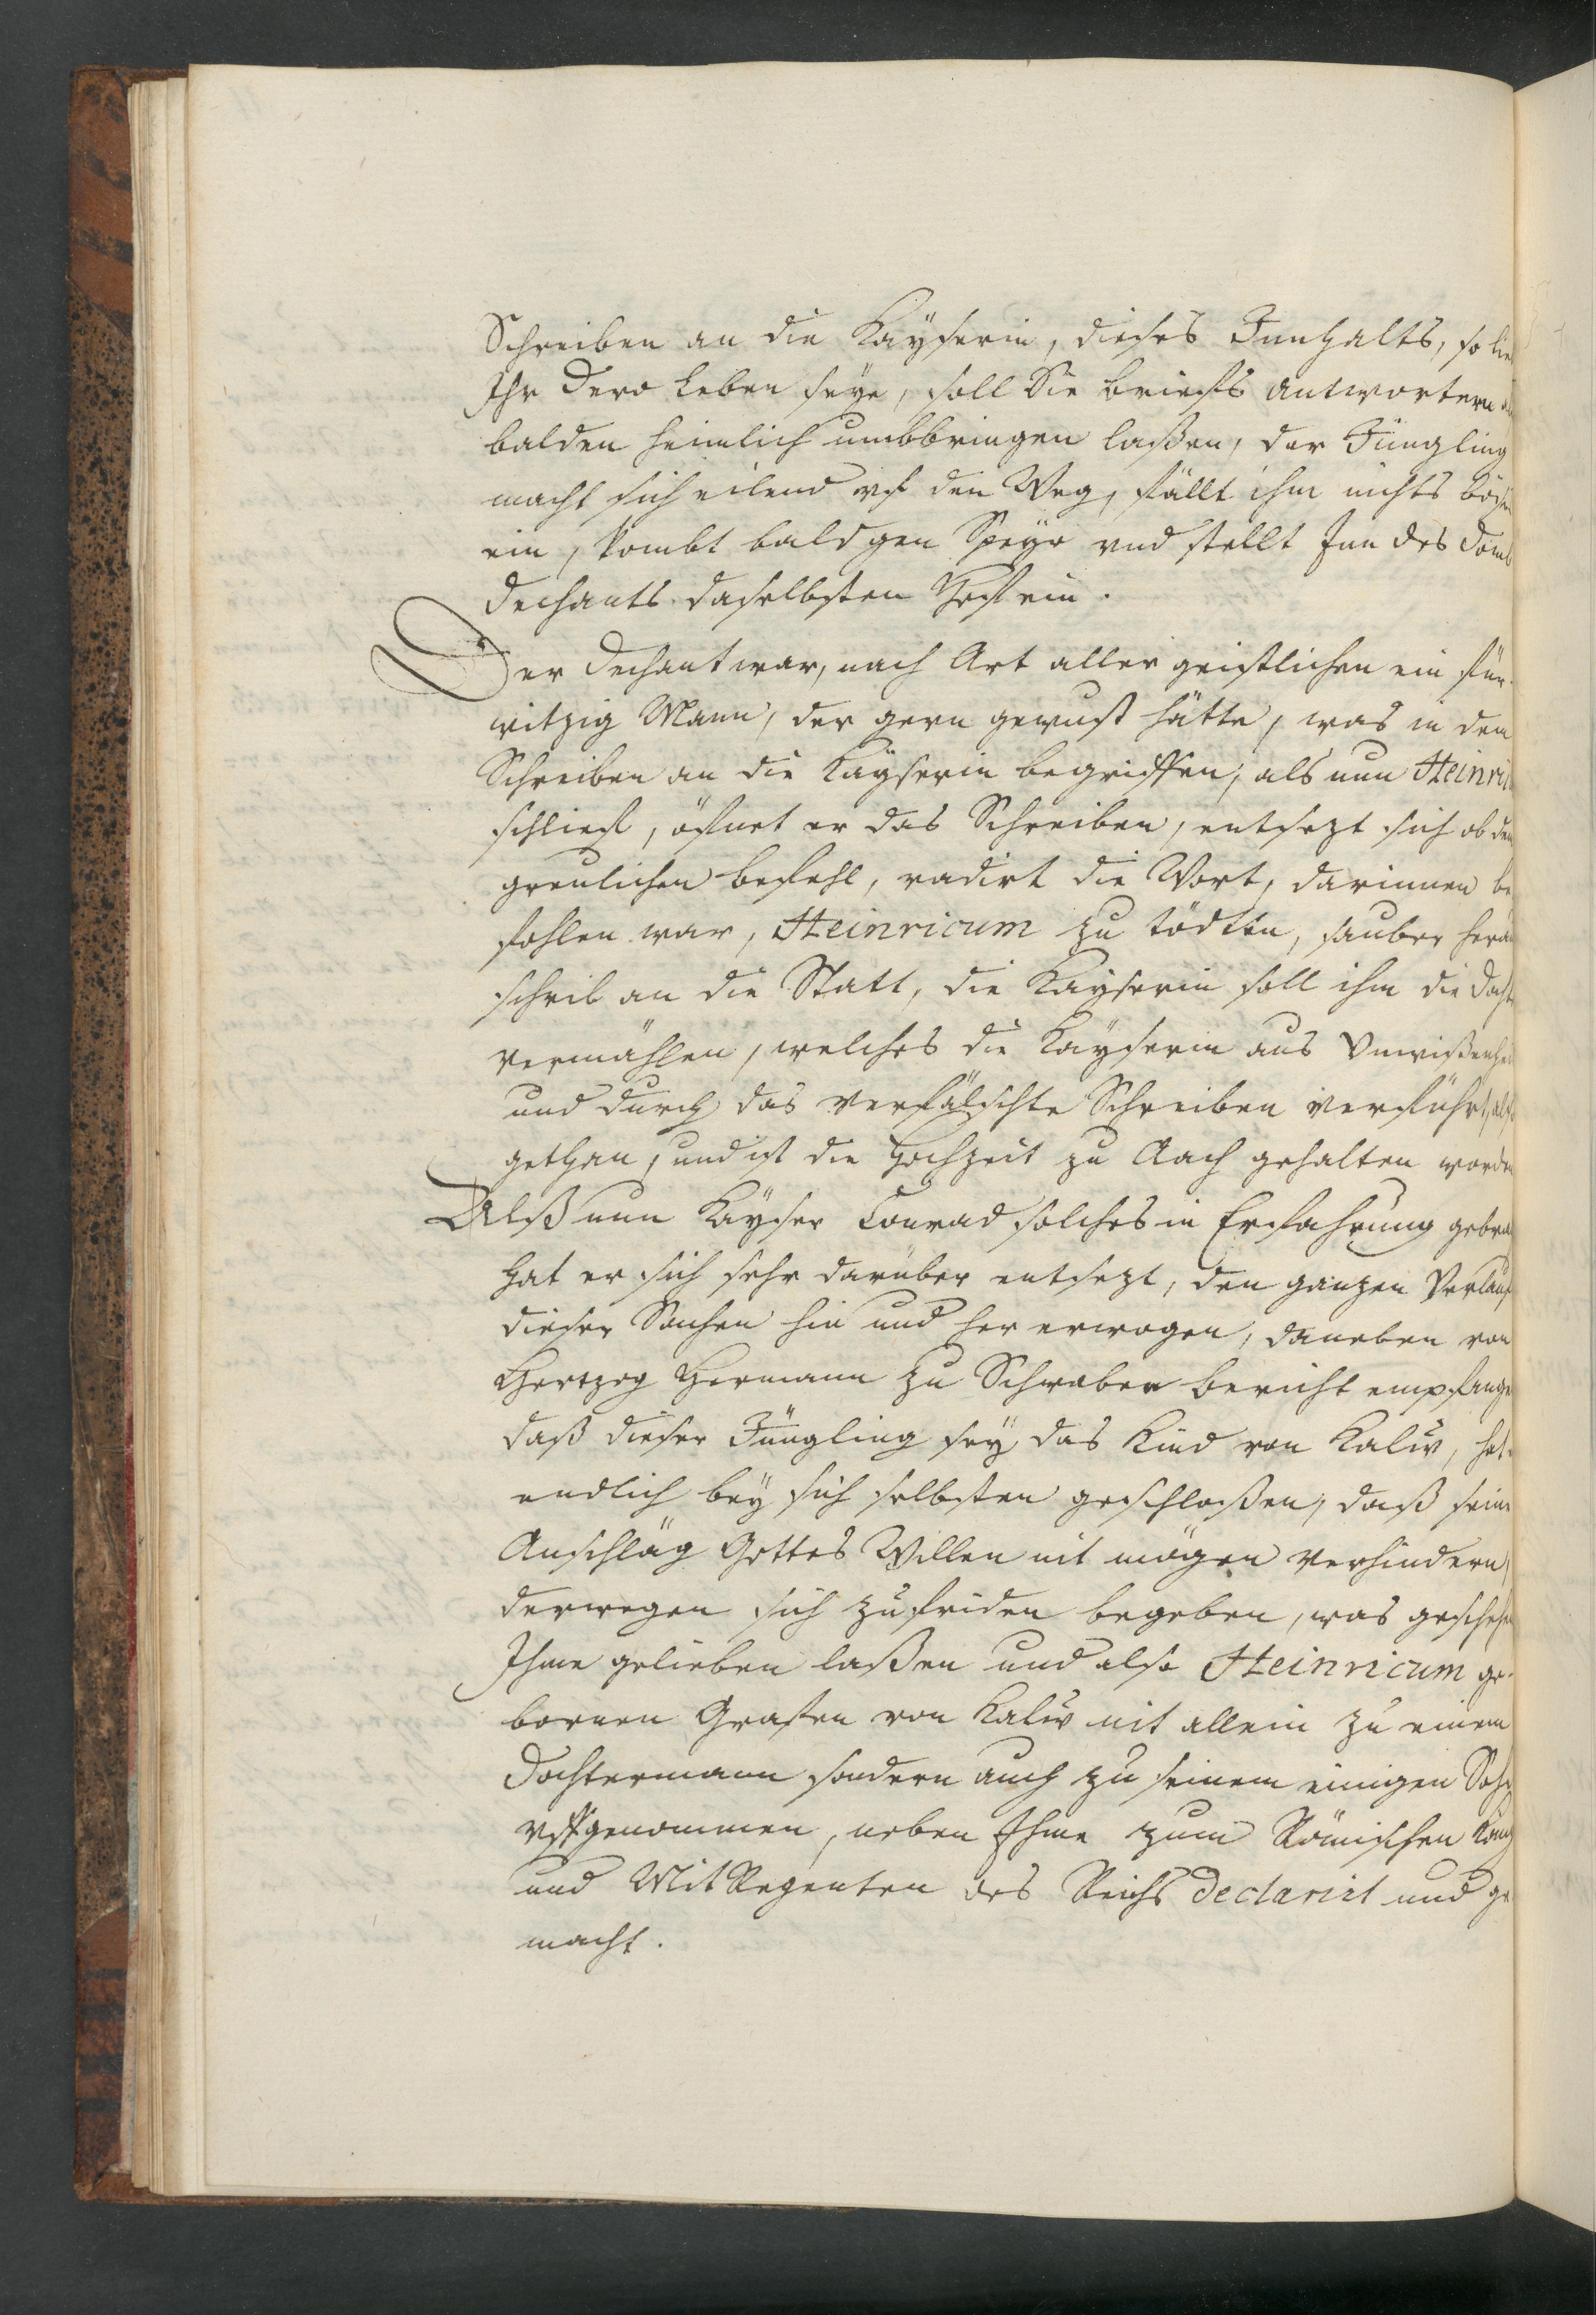 Schreiben an die Kayserin, dieses Innhalts, so lie
Ihr dero Leben seye, soll Sie brieffs Antwortern
balden heimlich umbbringen laßen, der Jüngling
macht sich eilend uf den Weg, fällt ihm nichts böses
ein, kombt bald gen Speyr und stellt Inn des Domb
dechants daselbsten Hoff ein.
Der Dechant war, nach Art aller geistlichen ein für-
witzig Mann, der gern gewust hätte, was in dem
Schreiben an die Kayserin begriffen, als nun Heinric
schlieff, öfnet er das Schreiben, entsezt sich ob dem
greulichen befehl, radirt die Wort, darinnen be
fohlen war, Heinricum zu tödten, sauber herau
schrib an die Statt, die Kayserin soll ihm die Docht
vermählen, welches die Kayserin aus Unwißenhei
und durch das verfälschte Schreiben verführt, also
gethan, und ist die Hochzeit zu Aach gehalten worden
Alß nun Kayser Conrad solches in Erfahrung gebra
hat er sich sehr darüber entsezt, den ganzen Verlauf
dieser Sachen hin und her erwogen, daneben von
Hertzog Hermann zu Schwaben bericht empfange
daß dieser Jüngling sey das Kind von Kalw, hat
endlich bey sich selbsten geschloßen, daß seine
Anschläg Gottes Willen nit mögen verhindern,
derwegen sich zufriden begeben, was geschehen
Ihme gelieben laßen und also Heinricum ge-
bornen Grafen von Kalw nit allein zu einem
Dochtermann sondern auch zu seinem einigen Sohn
uffgenommen, neben Ihme zum Römischen König
und Mit Regenten des Reichs declarirt und ge
macht.